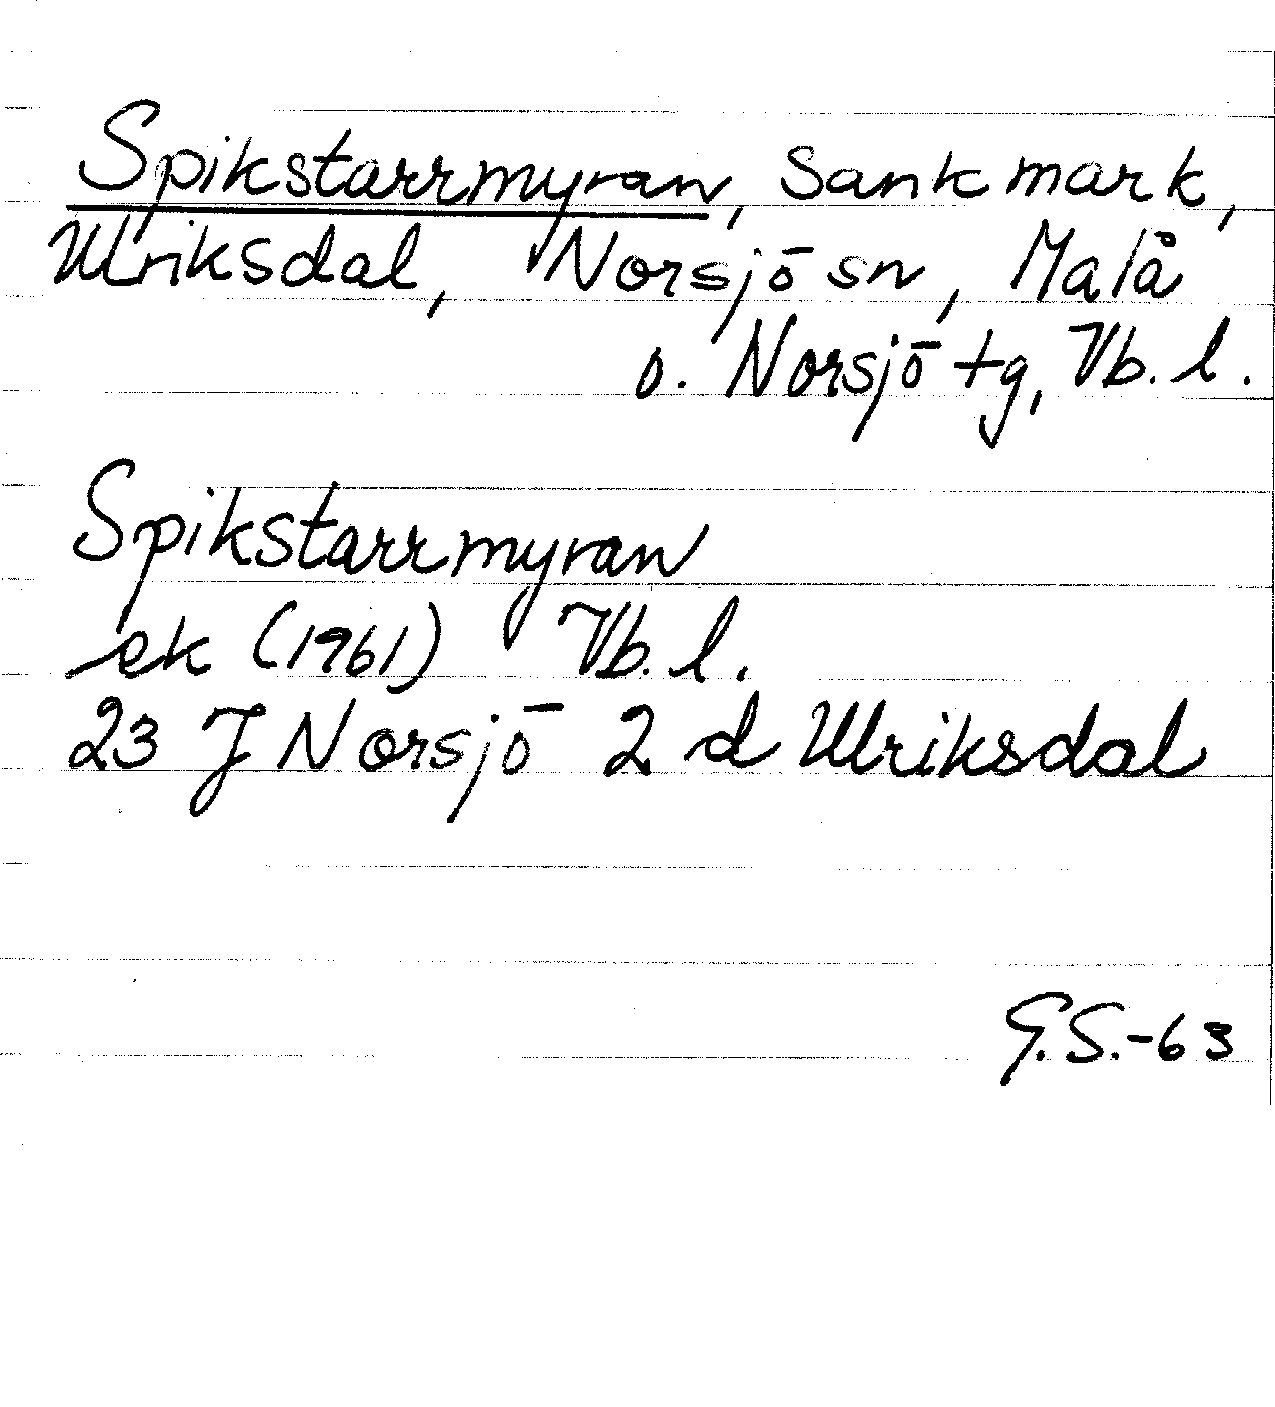 Spikstarrmyran, Sankmark,
Ulriksdal, Norsjö sn, Malå
o. Norsjö tg, Vb. l.
Spikstarrmyran
ek (1961) Vb. l.
23 J Norsjö 2 d Ulriksdal
G.S.-63